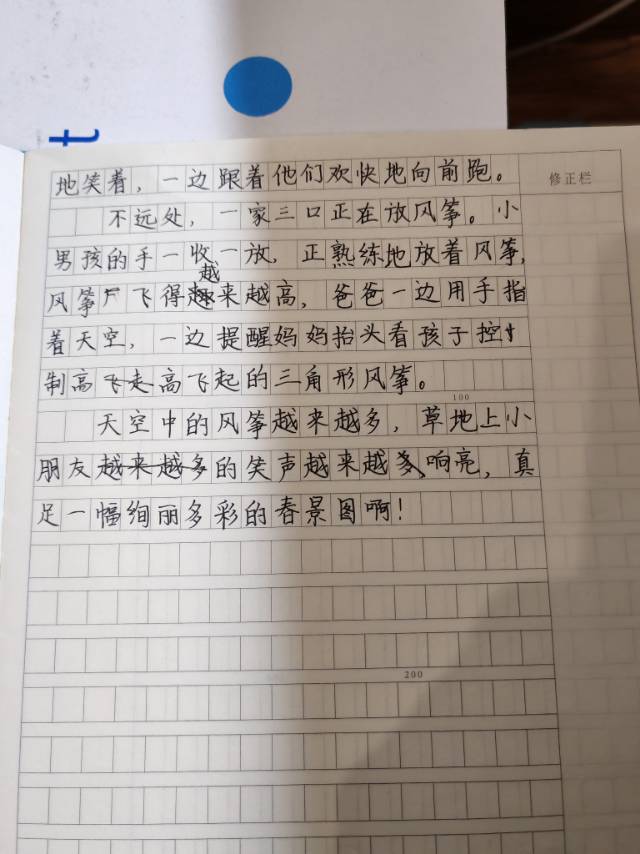 t
地笑着，一边跟着他们欢快地向前跑。
修正栏
不远处，一家三口正在放风筝。小
男孩的手一收一放，正熟练地放着风筝，
越
风筝飞得来越高，爸爸一边用手指
着天空，一边提醒妈妈抬头看孩子控
制高飞走高飞起的三角形风筝。
100
天空中的风筝越来越多，草地上小
朋友越来越多的笑声越来越响亮，真
足一幅绚丽多彩的春景图啊！
200